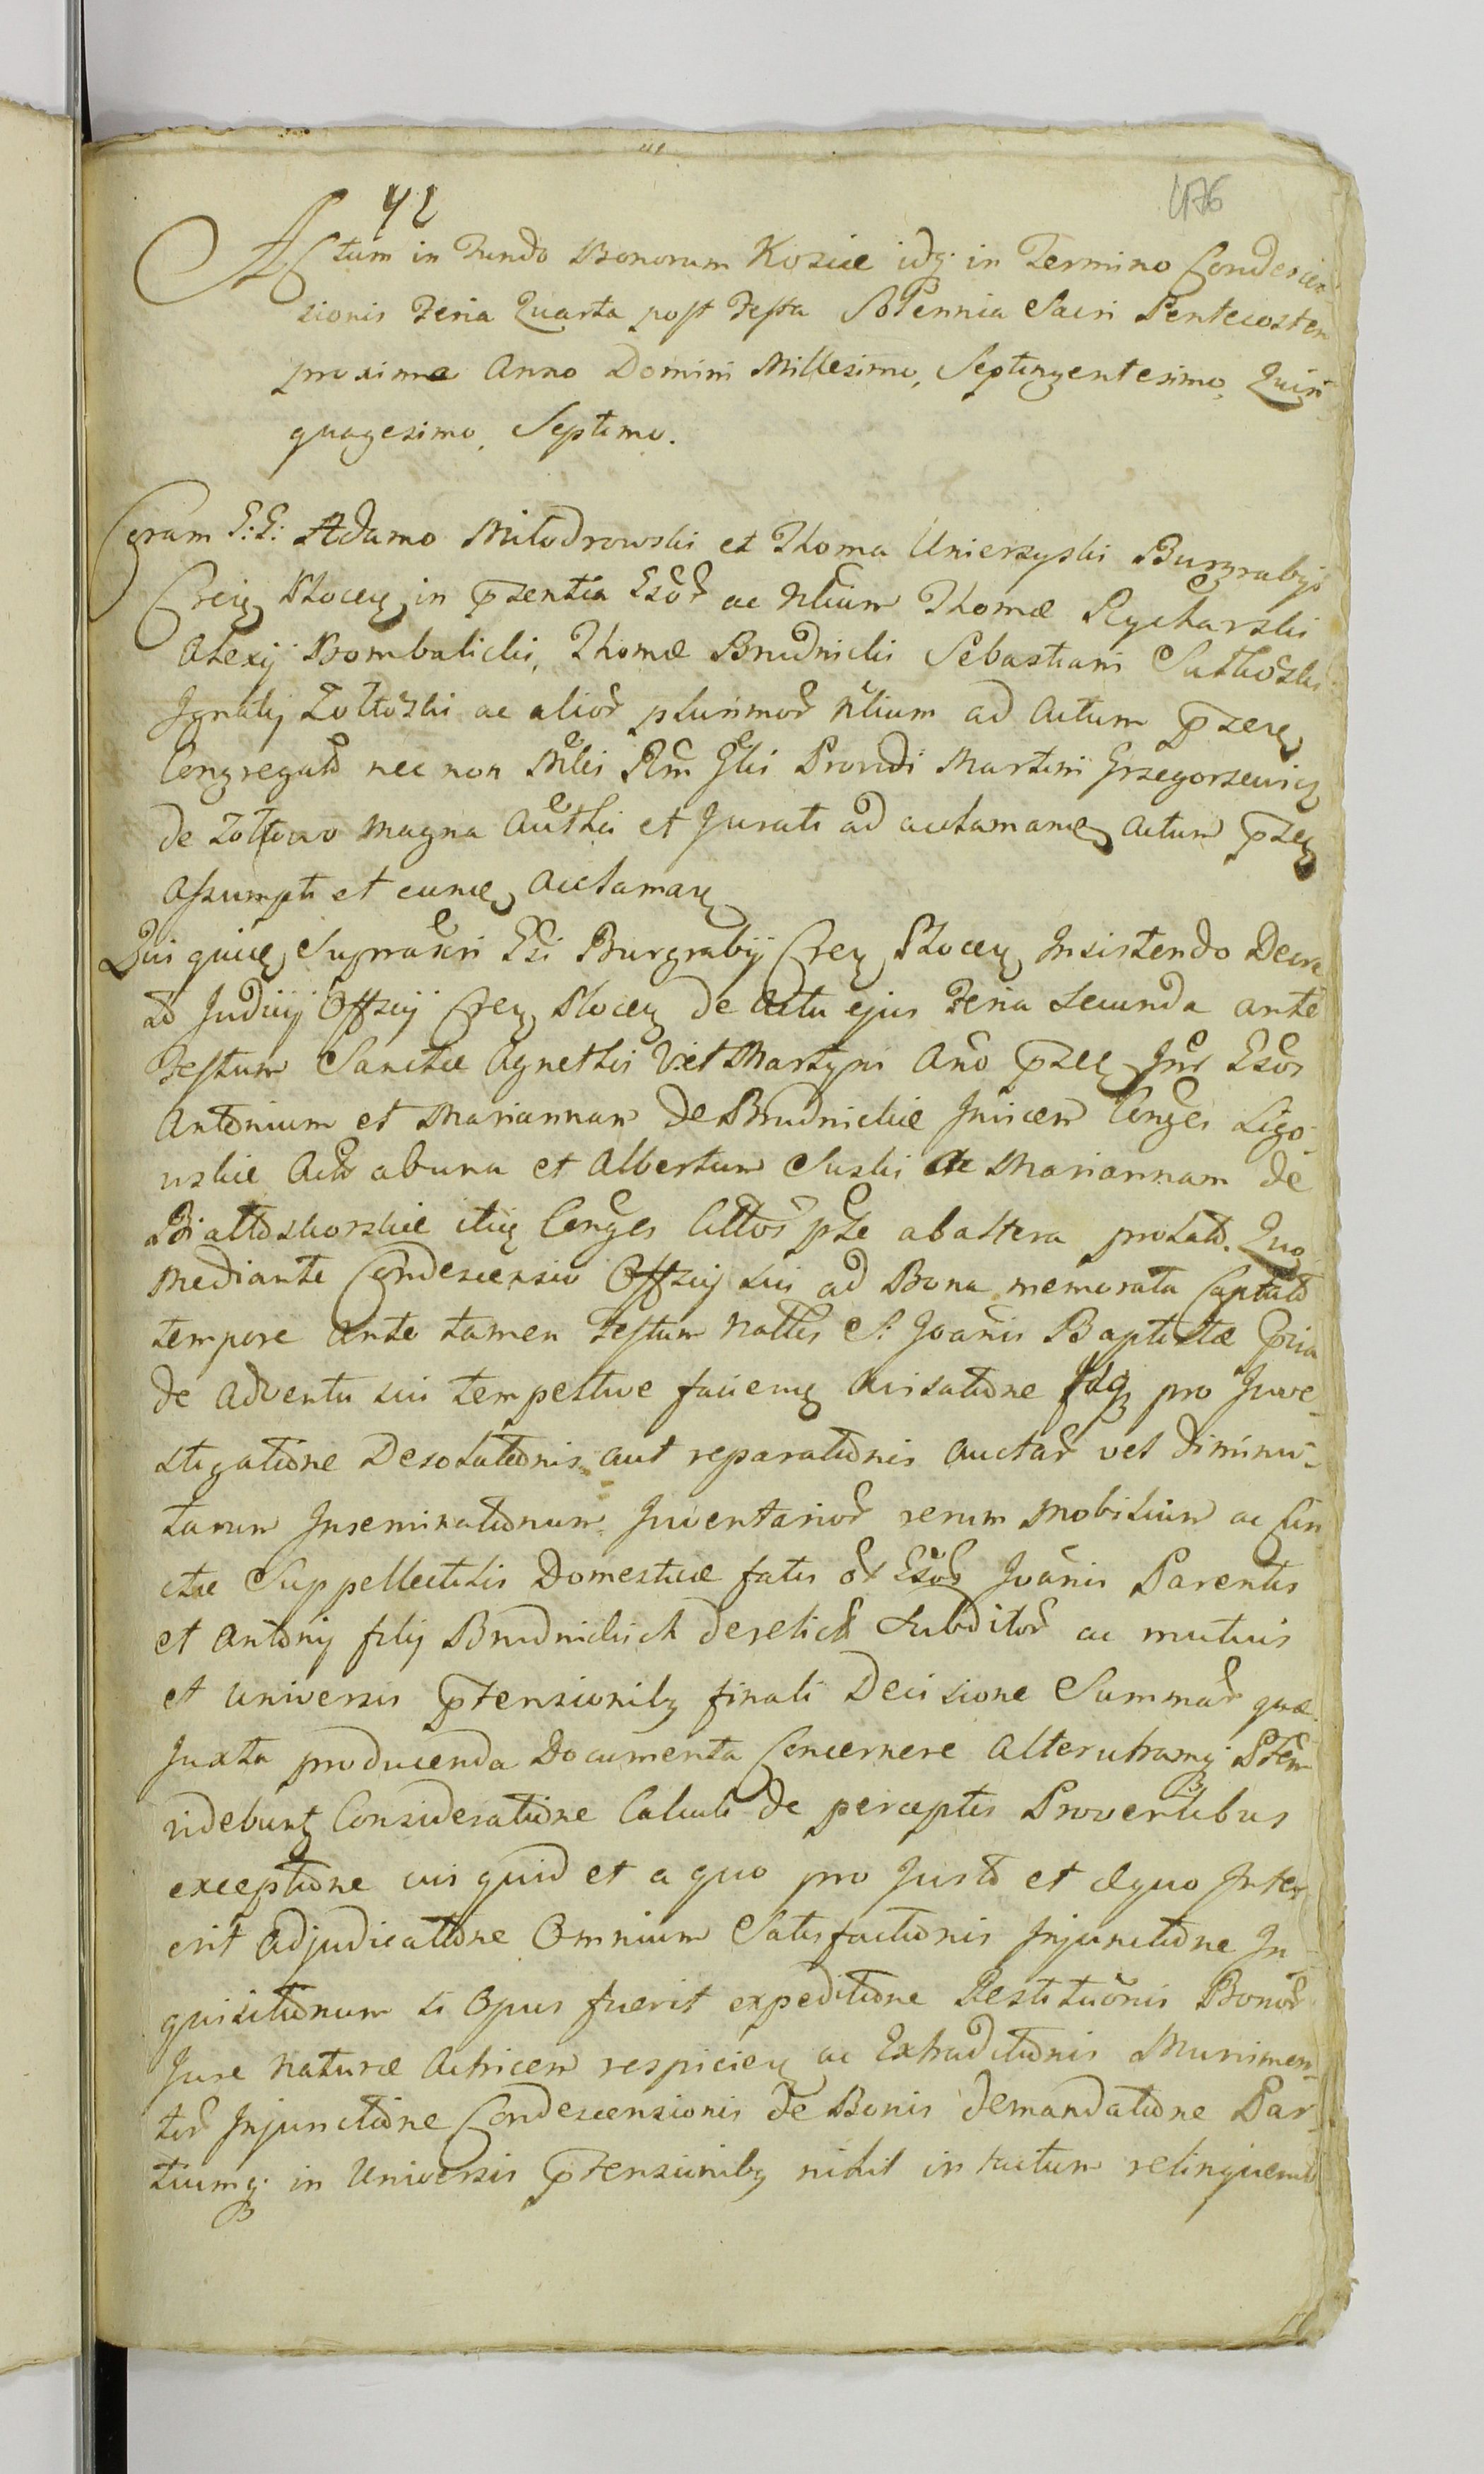 42
476
Actum in Fundo Bonorum Kozice idq. in Termino Condescen
sionis Feria Quarta post Festa Solennia Sacri Pentecosten
proxima Anno Domini Millesimo, Septingentesimo, Quin
quagesimo, Septimo.
Coram G: G: Adamo Miłodrowski et Thoma Unierzyski Burgrabijs
Ploceñ in pzentia ac Nlium Thomæ Rycharski
Alexij Bombalicki, Thomæ Brudnicki Sebastiani Sutkoski
Ignatij Żółtoski ac alior plurimor Nlium ad Actum pzen
Congregator nec non Mlis Rni Glis Providi Martini Grzegorzewicz
de Żółtowo Magna Authci et Jurati ad acclamand Actum pzen
Assumpti et eund acclamañ
Qui quid Suprascri Gsi Burgrabij Ploceñ Insistendo Decre
to Judicij Officij Ploceñ de Actu ejus Feria Secunda ante
Festum Sanctæ Agnethis V. et Martyris Año pzen Intr Gsos
Antonium et Mariannam de Brudnickie Invicem Conges Ligo
wskie Actor ab una et Albertum Suski Ac Mariannam de
Białłoskorskie itid Conges Cittos pte ab altera prolato. Quo
Mediante Condescensio Officij sui ad Bona memorata Captato
tempore ante tamen Festum Nattis S: Joañis Baptistæ pvia
de adventu sui tempestive faciend avisatione Idq pro Inve-
stigatione Desolationis aut reparationis auctar vel diminu-
tarum Inseminationum Inventarior rerum Mobilium ac Cun
ctæ Suppellectilis Domesticæ fatis ol Gsor Joañis Parentis
et Antonij filij Brudnickich derelictt Subditor ac mutuis
et universis ptensionibq finali Decisione Summar quæ
Juxta producenda Documenta Concernere Alterutramq Ptem
videbunt Consideratione Calculi de perceptis Proventibus
exceptione cui quid et a quo pro Justo et æquo Inter
erit adjudicatione Omnium Satisfactionis Injunctione In
quisitionum si Opus fuerit expeditione Restituonis Bonor
Jure Naturæ Actricem respicień ac Extraditionis Munimen-
tor Injunctione Condescensionis de Bonis demandatione Par-
tiumq. in Universis ptensionibq nihil intactum relinquendo